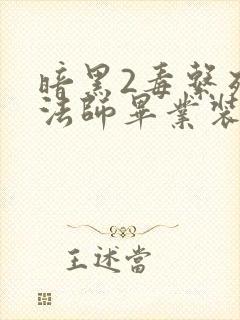 暗黑2毒繫死
法師畢業裝
王述當